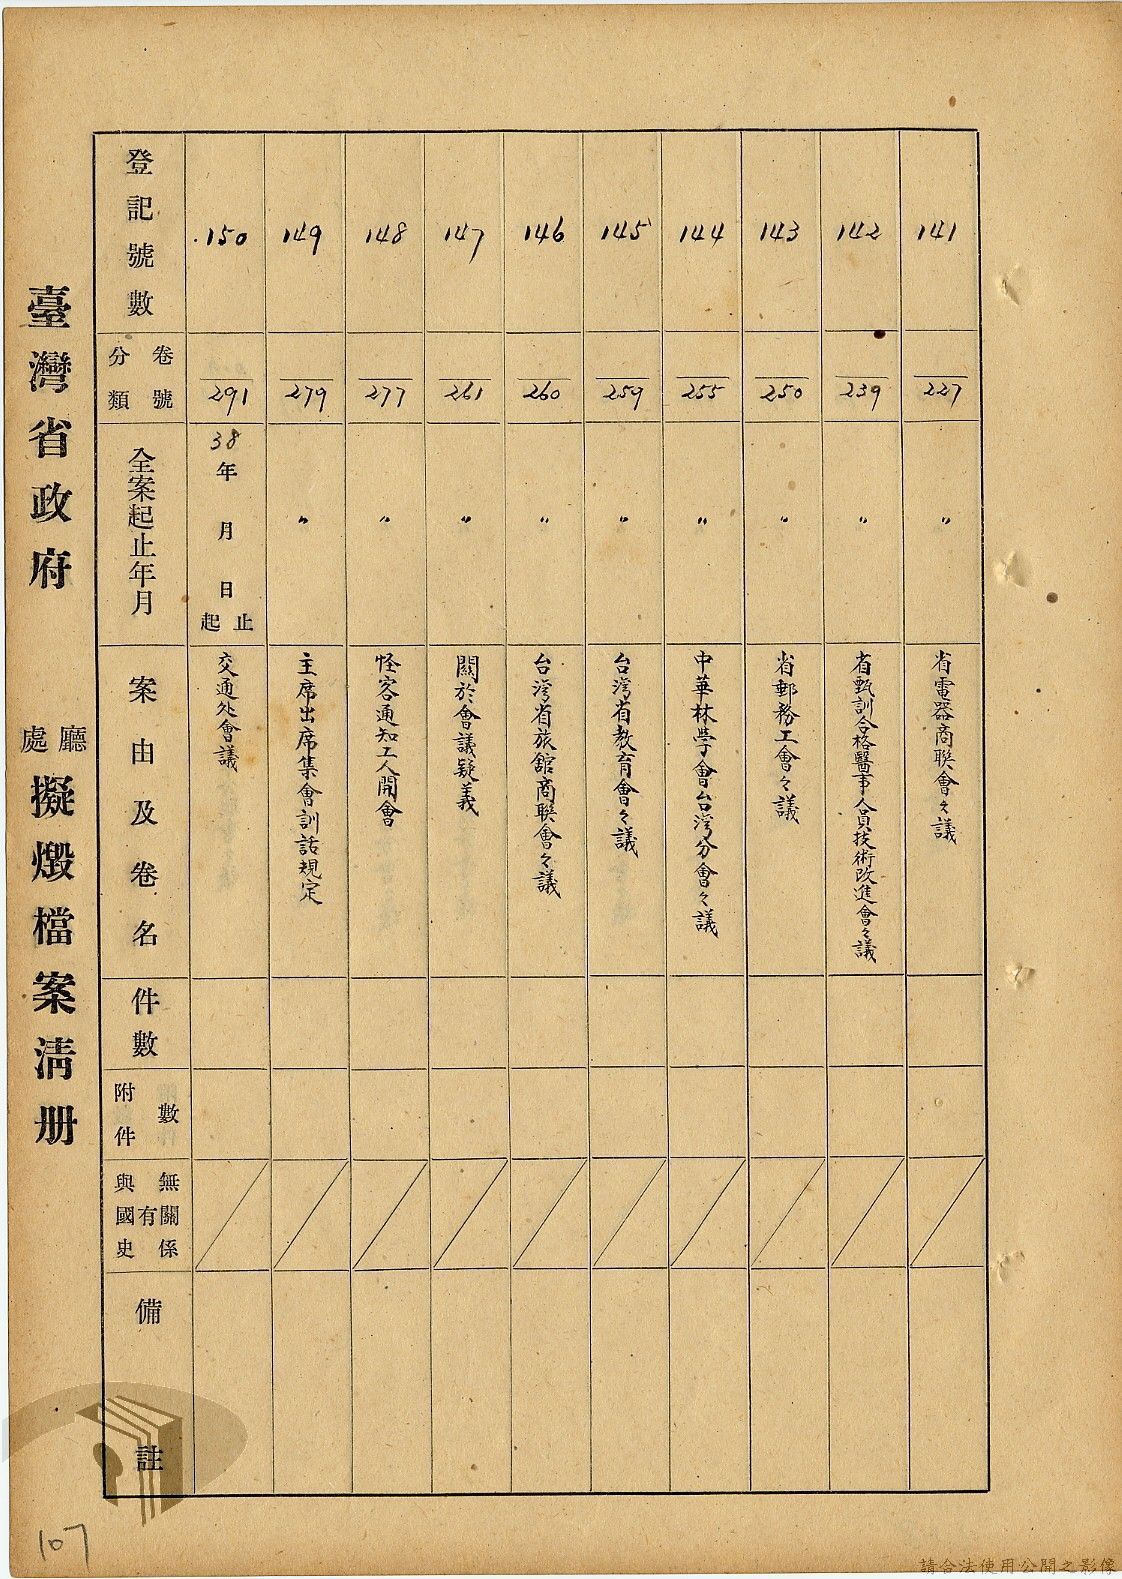 臺灣省政府 廳處 擬燬檔案清册
登記號數
分類 卷號
全案起止年月
案由及卷名
件數
附件 數
與國史 有 無關係
備註
150
291
38年 月 日 起止
交通处會議
149
279
〃
主席出席集會訓話規定
148
277
〃
怪客通知工人開會
147
261
〃
關於會議疑義
146
260
〃
台湾省旅館商联會々議
145
259
〃
台湾省教育會々議
144
255
〃
中華林学會台湾分會々議
143
250
〃
省郵務工會々議
142
239
〃
省甄訓合格醫事人員技術改進會々議
141
227
〃
省電器商联會々議
107
請合法使用公開之影像